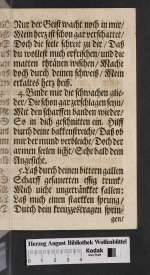 Nur der Geist wacht noch in mir/
Mein hertz ist schon gar verschaltet/
Doch die seele schreit zu dir/ Daß
du wollest mich erfrischen/ und die
matten thränen wischen/ Mache
doch durch deinen schweiß/ Mein
erkaltes hertz heiß.
4. Binde mir die schwachen glie-
der/ Die schon gar zerschlagen seyn/
Mit den scharffen banden wieder/
So in dich geschnitten ein. Hilff
durch deine backenstreiche/ Daß ob
mir der mund verbleiche/ Doch der
armen seelen licht/ Sehe bald dein
Angesicht.
5. Laß durch deinen bittern gallen
Scharff gesaurten essig trunk/
Mich nicht ungetränket fallen:
Laß mich einen starcken sprung/
Durch dein kreutzestragen sprin-
gen/
Herzog August Bibliothek Wolfenbüttel
Kodak